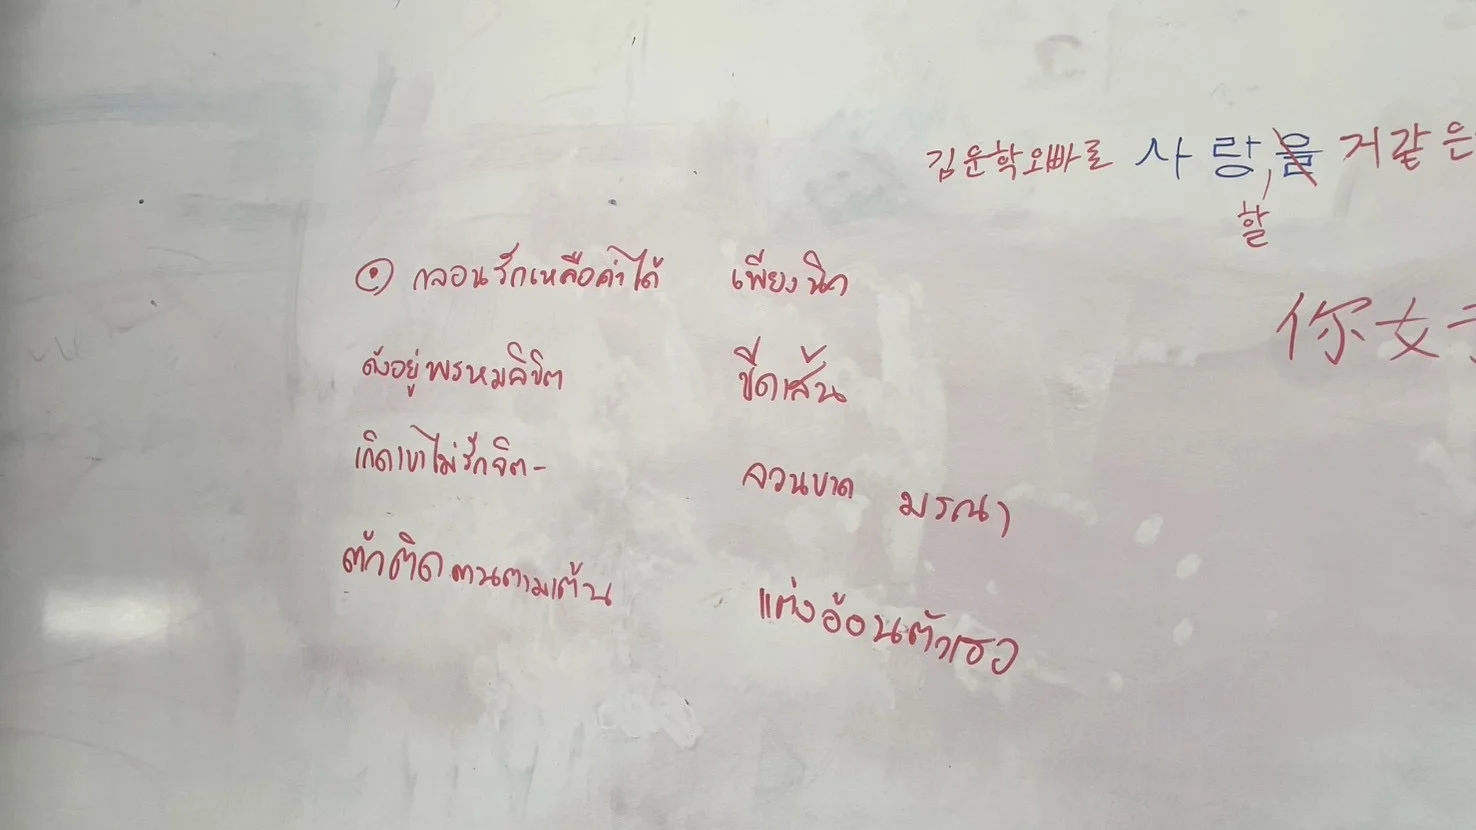 김운학오빠로 사랑을 거같은
할
你女
๏ กลอนรักเหลือค่าได้ เพียงนิด
ดังอยู่พรหมลิขิต ขีดเส้น
เกิดเขาไม่รักจิต- จวนขาด มรณา
ตัดติด ตามเต้น แต่งอ้อนตัวเธอ